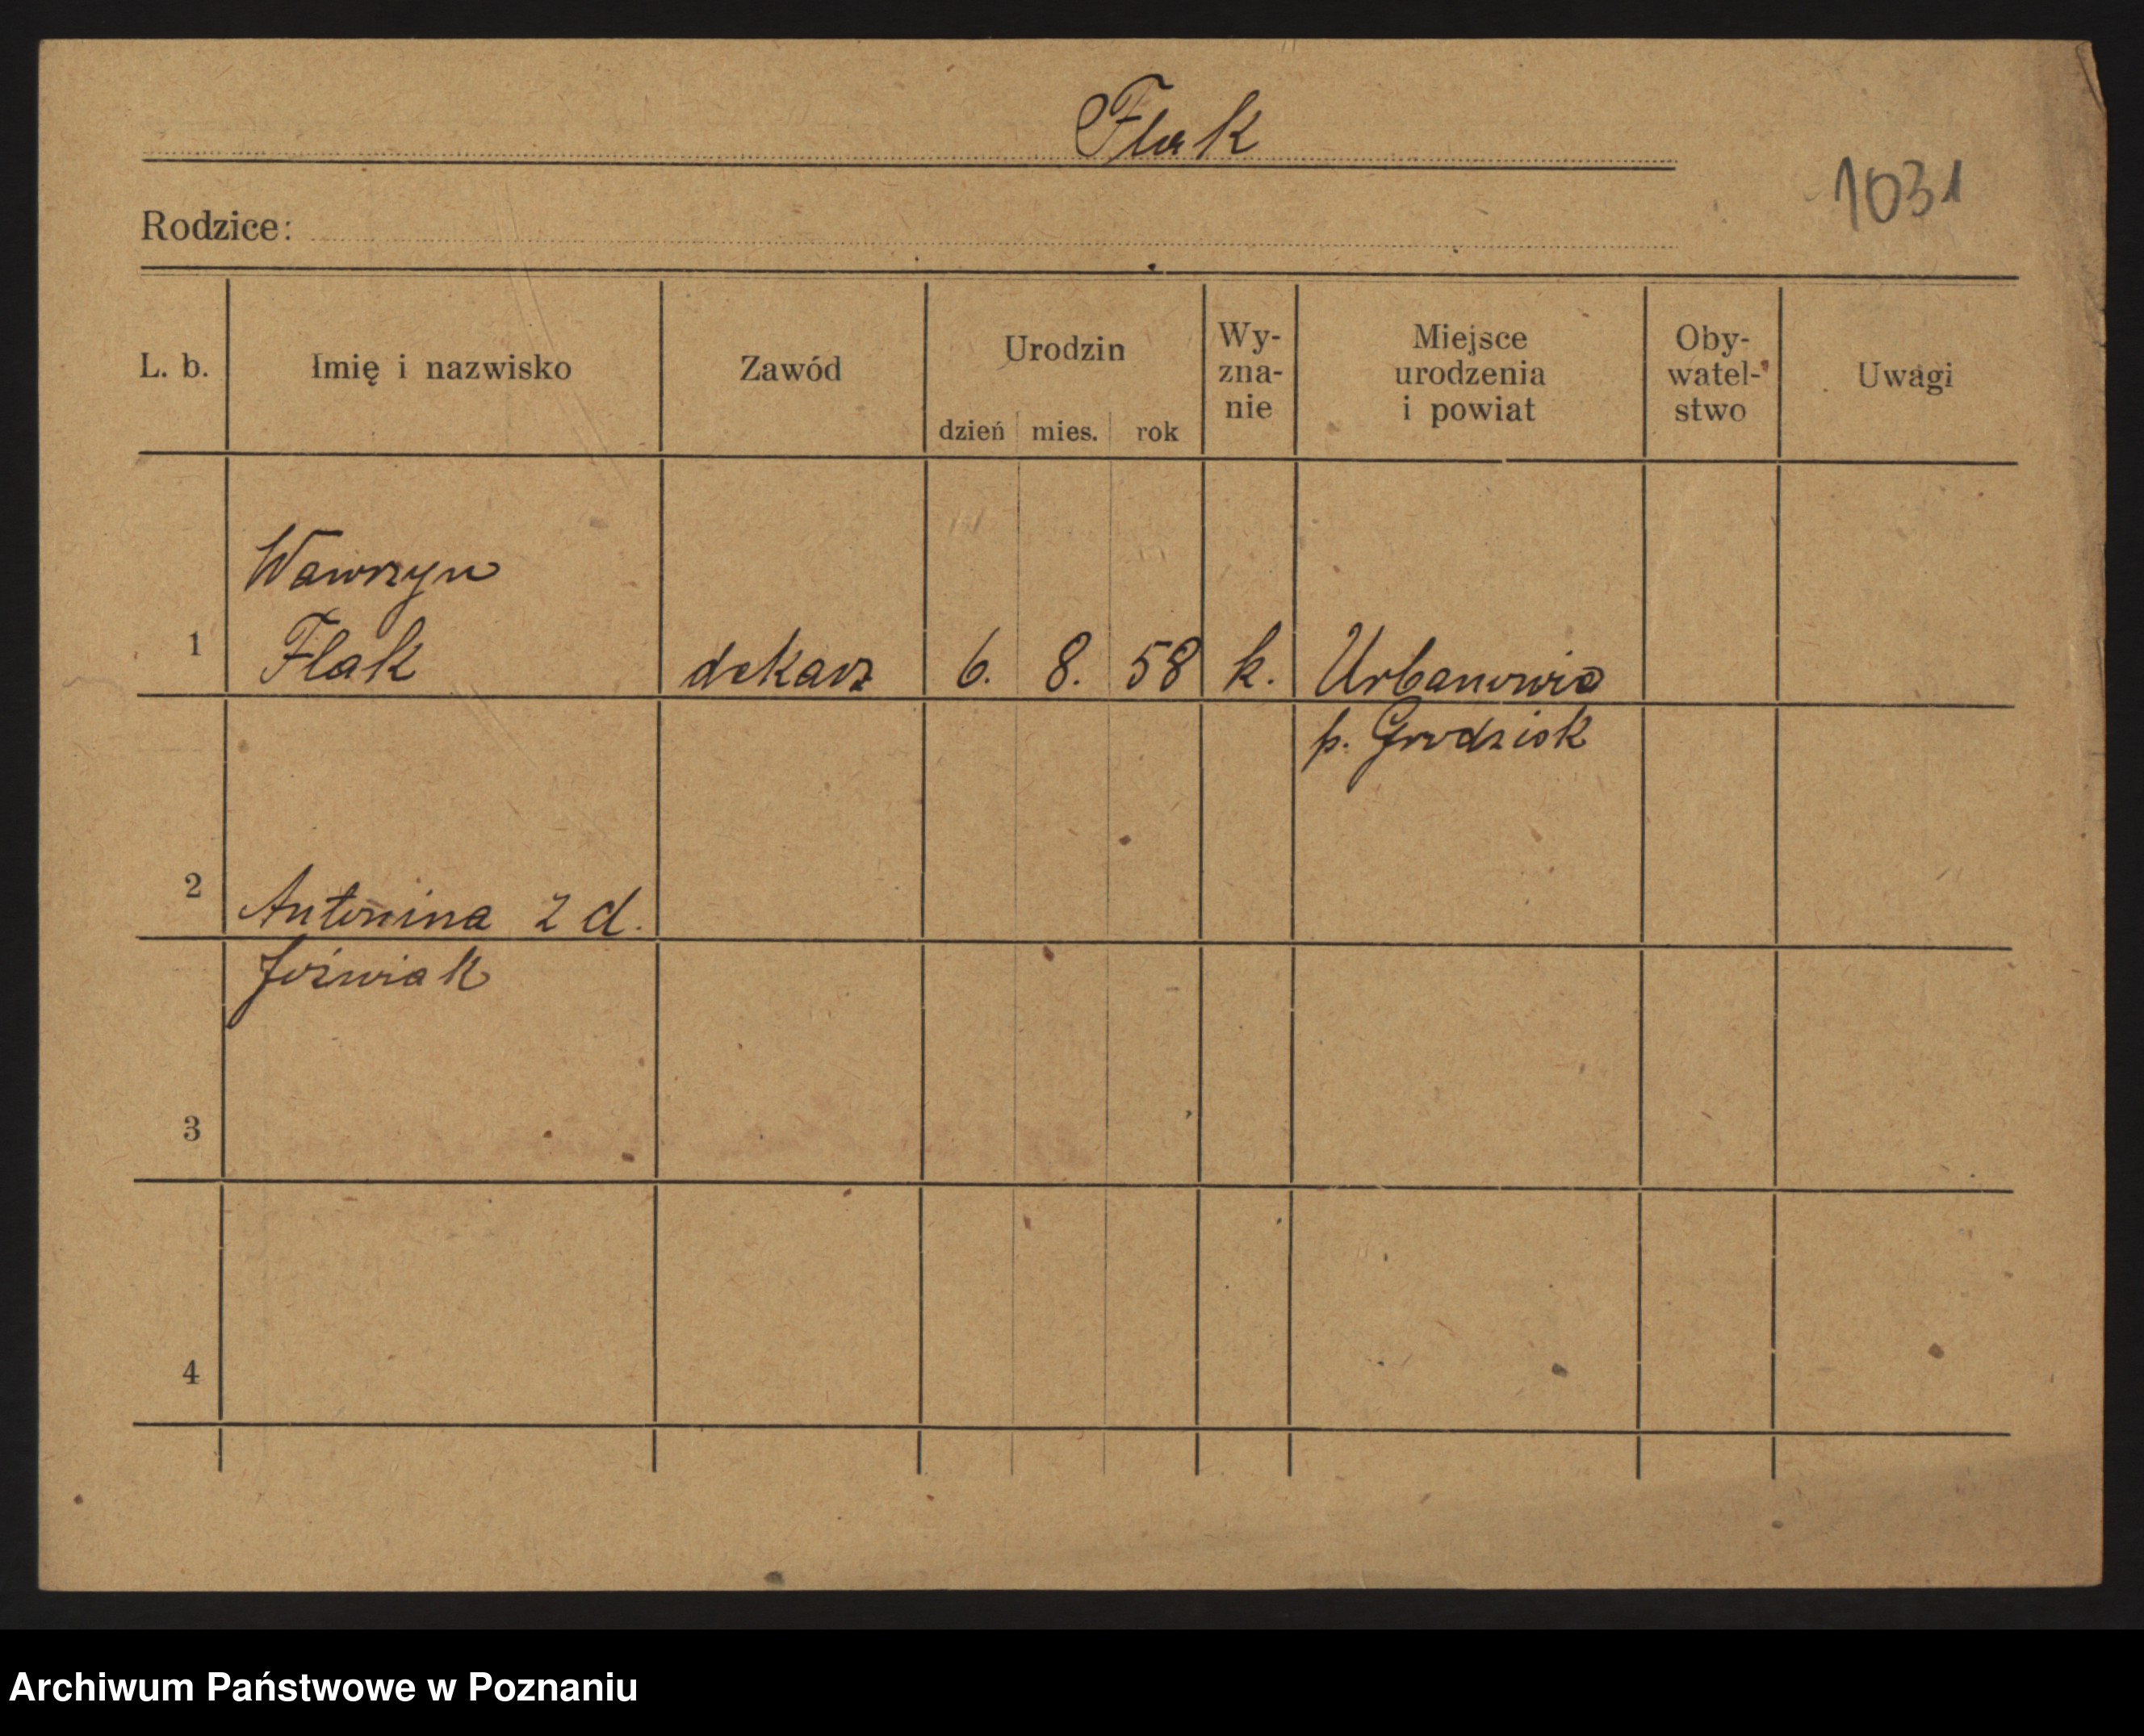 Flak
1031
Rodzice:
L. b.
Imię i nazwisko
Zawód
Urodzin
dzień mies. rok
Wy-
zna-
nie
Miejsce
urodzenia
i powiat
Oby-
watel-
stwo
Uwagi
Wawrzyn
1 Flak dekarz 6. 8. 58 k. Urbanowie
p. Grodzisk
2 Antonina z d.
Jóźwiak
3
4
Archiwum Państwowe w Poznaniu